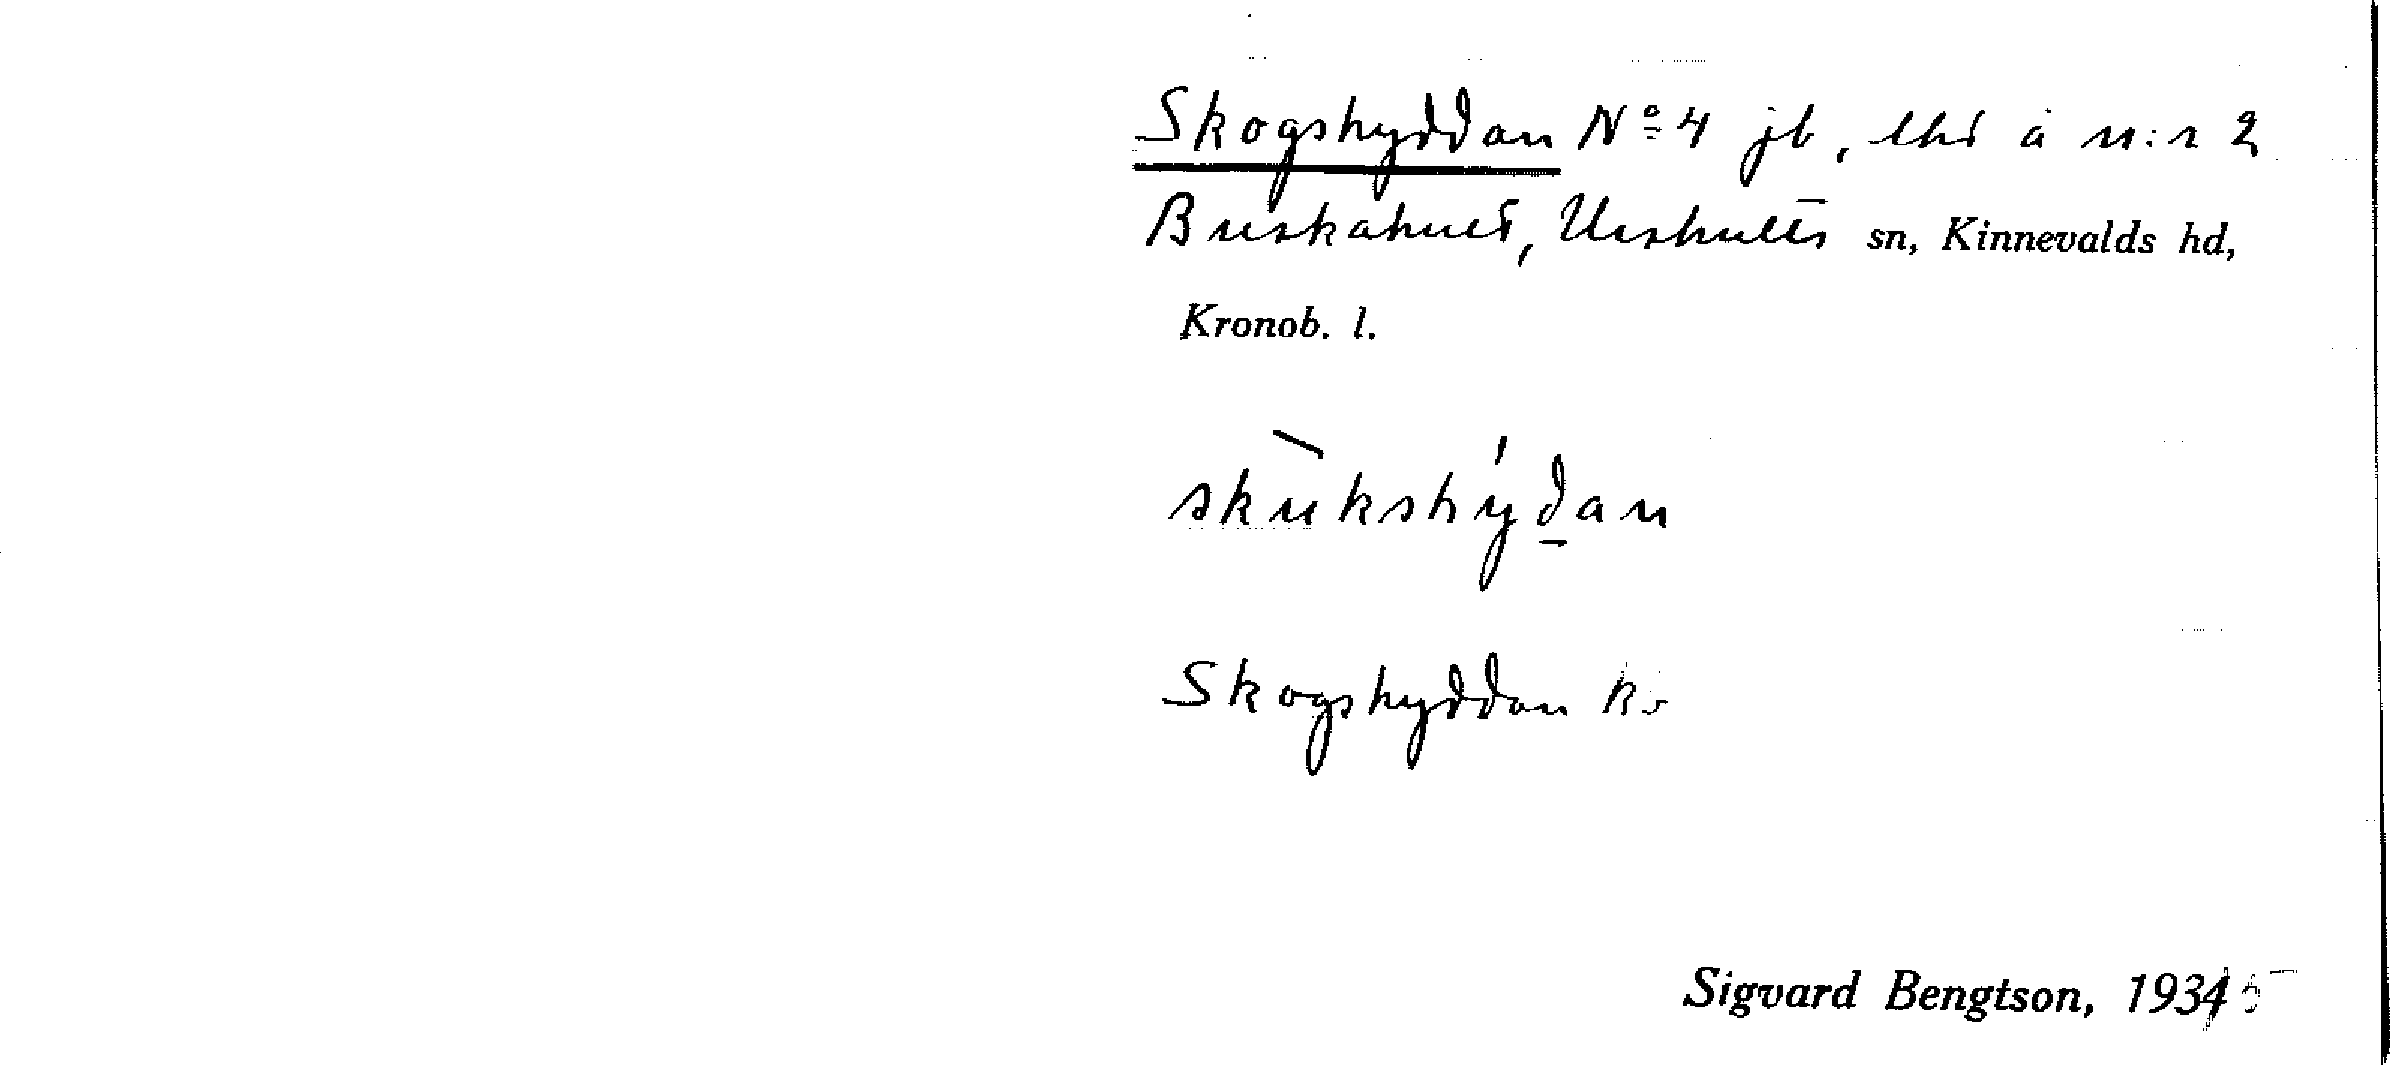 Skogshyddan Nº 4 jb, lht å n:r 2
Buskahult, Urshults sn, Kinnevalds hd,
Kronob. l.
skùkshýdan
Skogshyddan kr
Sigvard Bengtson, 1935